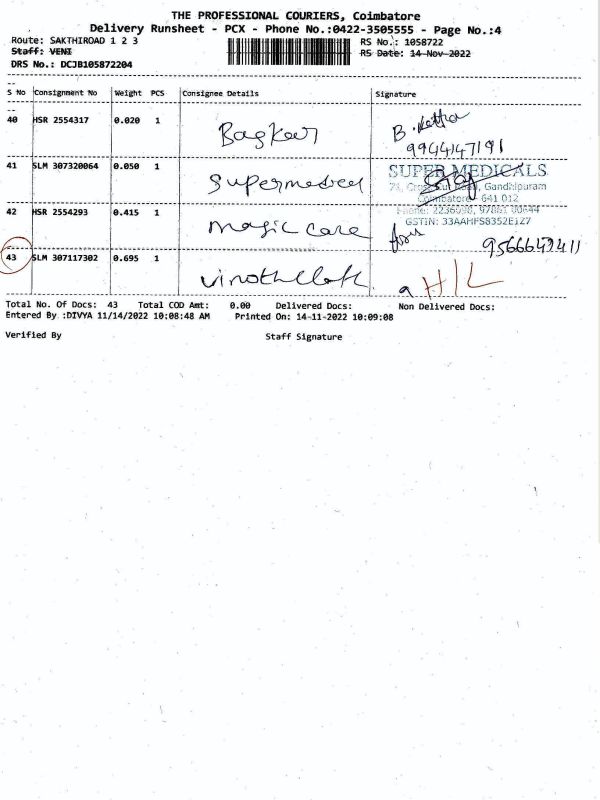 THE PROFESSIONAL COURIERS, Coimbatore
Delivery Runsheet - PCX - Phone No.:0422-3505555 - Page No.:4
Route: SAKTHIROAD 1 2 3
RS No.: 1058722
Staff: VENI
RS Date: 14-Nov-2022
DRS No.: DCJB105872204
S No Consignment No Weight PCS Consignee Details Signature
40 HSR 2554317 0.020 1
9944147191
41 SLM 307320064 0.050 1 Supermedical
SUPER MEDICALS
Cross Cut Road, Gandhipuram
Coimbatore - 641 012
GSTIN: 33AAHFS8352E1Z7
42 HSR 2554293 0.415 1 Magic care
9566649411
43 SLM 307117302 0.695 1
Total No. Of Docs: 43 Total COD Amt: 0.00 Delivered Docs: Non Delivered Docs:
Entered By :DIVYA 11/14/2022 10:08:48 AM Printed On: 14-11-2022 10:09:08
Verified By Staff Signature